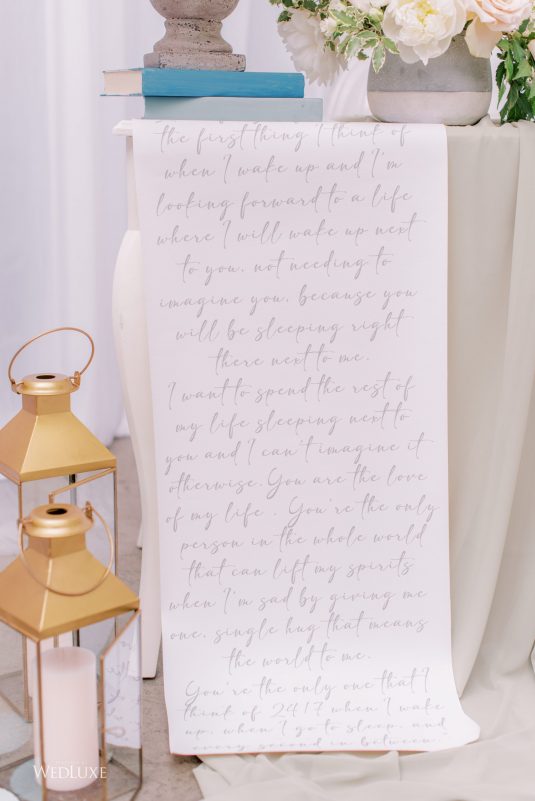 the first thing I think of
when I wake up and I'm
looking forward to a life
where I will wake up next
to you, not needing to
imagine you, because you
will be sleeping right
there next to me.
I want to spend the rest of
my life sleeping next to
you and I can't imagine it
otherwise. You are the love
of my life . You're the only
person in the whole world
that can lift my spirits
when I'm sad by giving me
one, single hug that means
the world to me.
You're the only one that I
think of 24/7 when I wake
up, when I go to sleep, and
every second in between."
WEDLUXE